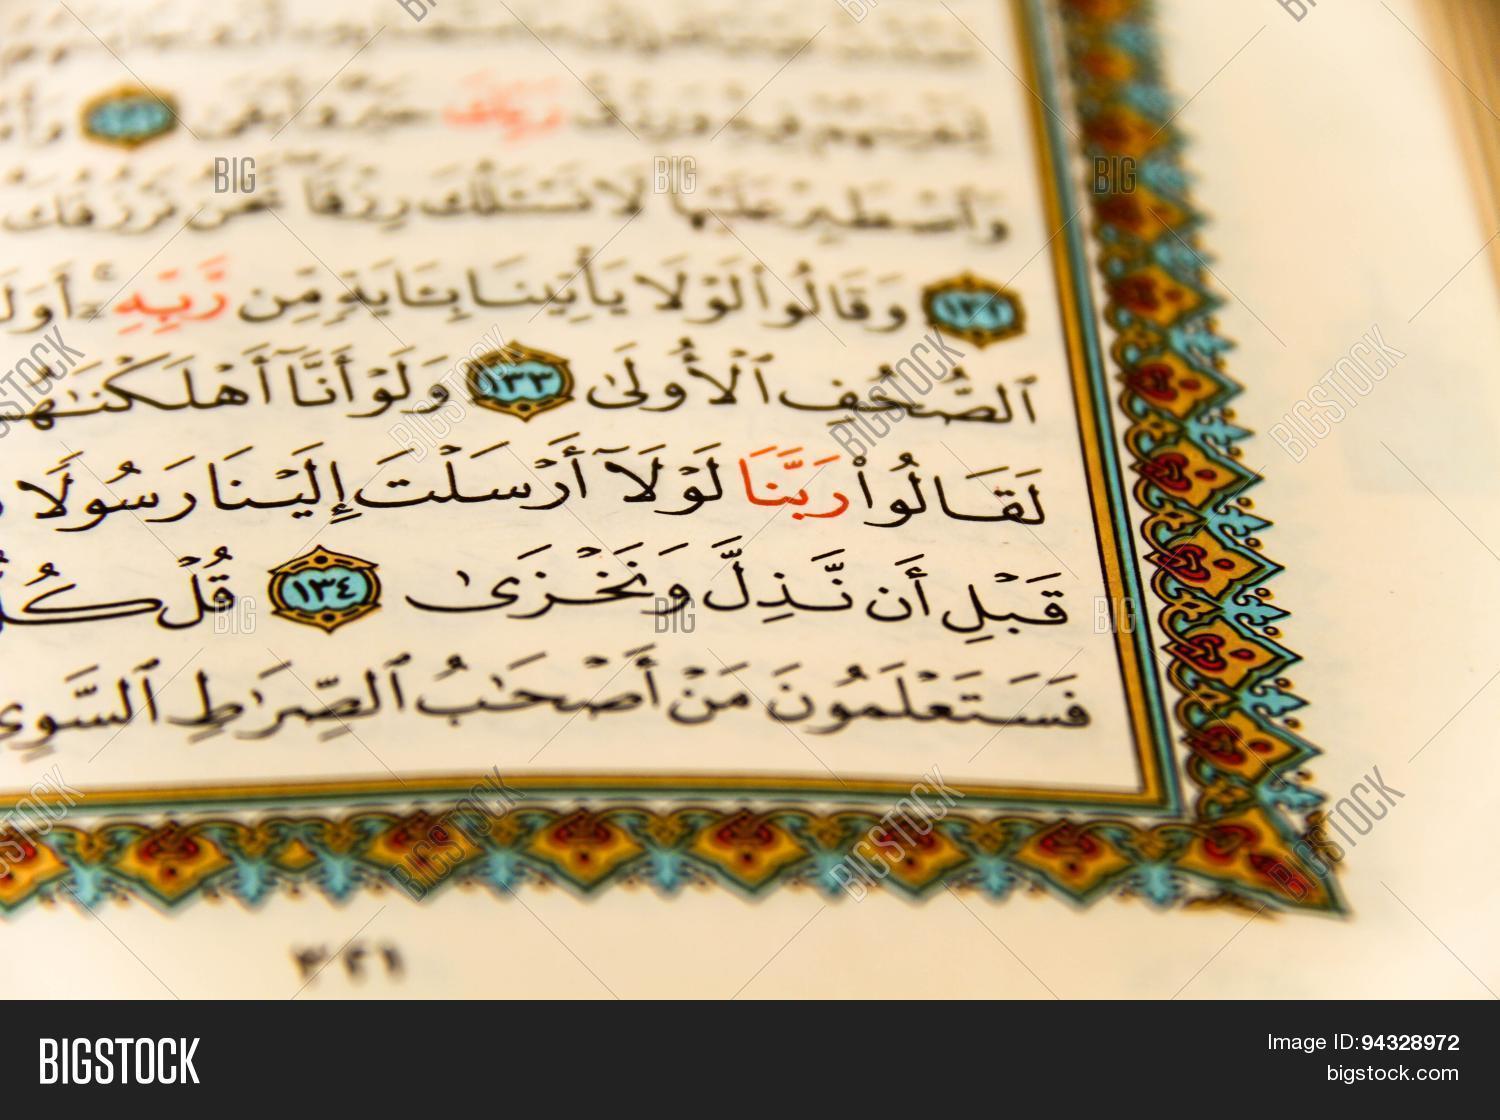 وَأَصْطَبِرْ عَلَيْهَا لَا نَسْـَٔلُكَ رِزْقًا نَّحْنُ نَرْزُقُكَ
۝١٣٢ وَقَالُوا۟ لَوْلَا يَأْتِينَا بِـَٔايَةٍ مِّن رَّبِّهِۦٓ ۚ أَوَلَ
ٱلصُّحُفِ ٱلْأُولَىٰ ١٣٣ وَلَوْ أَنَّآ أَهْلَكْنَـٰهُ
لَقَالُوا۟ رَبَّنَا لَوْلَآ أَرْسَلْتَ إِلَيْنَا رَسُولًا
قَبْلِ أَن نَّذِلَّ وَنَخْزَىٰ ١٣٤ قُلْ كُ
فَسَتَعْلَمُونَ مَنْ أَصْحَـٰبُ ٱلصِّرَٰطِ ٱلسَّوِىِّ
٣٢١
BIGSTOCK
Image ID: 94328972
bigstock.com